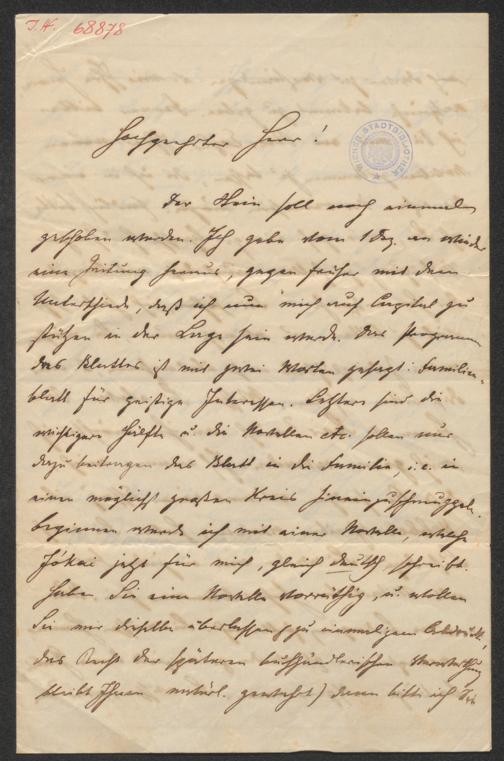 J.N. 68878
Hochgeehrter Herr!
WIENER STADTBIBLIOTHEK
Der Stein soll noch einmal
gehoben werden. Ich gebe vom 1 Dez. an wieder
eine Zeitung heraus, gegen früher mit dem
Unterschiede, daß ich nun mich auf Capital zu
stützen in der Lage sein werde. Das Programm
des Blattes ist mit zwei Worten gesagt: Familien-
blatt für geistige Interessen. Letztere sind die
wichtigere Hälfte u die Novellen etc. sollen nur
dazu beitragen das Blatt in die Familie, i.e. in
einen möglichst großen Kreis hineinzuschmuggeln.
Beginnen werde ich mit einer Novelle, welche
Jókai jetzt für mich, gleich deutsch schreibt.
Haben Sie eine Novelle vorräthig, u. wollen
Sie mir dieselbe überlassen (zu einmaligem Abdruck,
das Recht der späteren buchhändlerischen Verwerthung
bleibt Ihnen natürl. gewahrt) dann bitte ich Sie